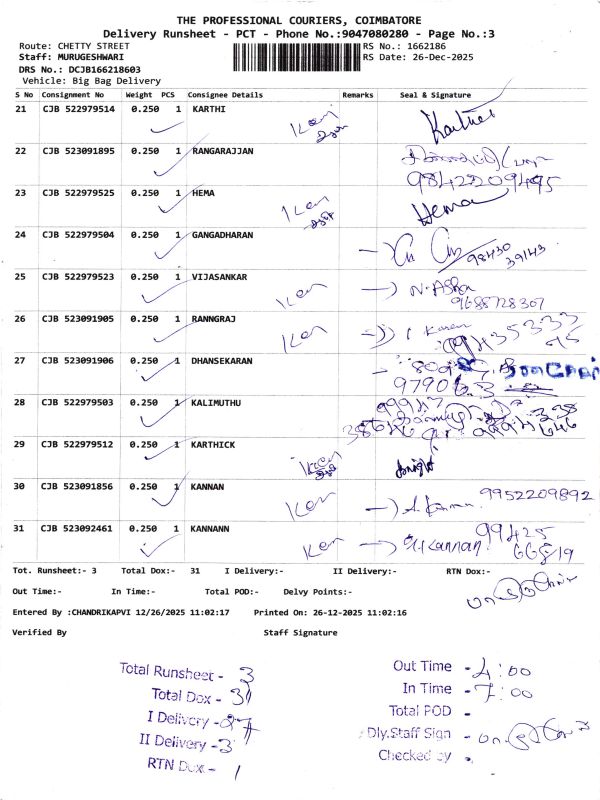 THE PROFESSIONAL COURIERS, COIMBATORE
Delivery Runsheet - PCT - Phone No.:9047080280 - Page No.:3
Route: CHETTY STREET
RS No.: 1662186
Staff: MURUGESHWARI
RS Date: 26-Dec-2025
DRS No.: DCJB166218603
Vehicle: Big Bag Delivery
S No Consignment No Weight PCS Consignee Details Remarks Seal & Signature
21 CJB 522979514 0.250 1 KARTHI Karthi
22 CJB 523091895 0.250 1 RANGARAJJAN
9842209495
23 CJB 522979525 0.250 1 HEMA Hema
24 CJB 522979504 0.250 1 GANGADHARAN
98430
39143
25 CJB 522979523 0.250 1 VIJASANKAR N. Asha
9688728307
26 CJB 523091905 0.250 1 RANNGRAJ
27 CJB 523091906 0.250 1 DHANSEKARAN
28 CJB 522979503 0.250 1 KALIMUTHU
29 CJB 522979512 0.250 1 KARTHICK
30 CJB 523091856 0.250 1 KANNAN A. Kannan 9952209892
31 CJB 523092461 0.250 1 KANNANN Kannan 99425
66819
Tot. Runsheet:- 3 Total Dox:- 31 I Delivery:- II Delivery:- RTN Dox:-
Out Time:- In Time:- Total POD:- Delvy Points:-
Entered By :CHANDRIKAPVI 12/26/2025 11:02:17 Printed On: 26-12-2025 11:02:16
Verified By Staff Signature
Total Runsheet - 3
Total Dox - 31
I Delivery - 27
II Delivery - 3
RTN Dox - 1
Out Time - 4:00
In Time - 7:00
Total POD -
Dly.Staff Sign -
Checked by -